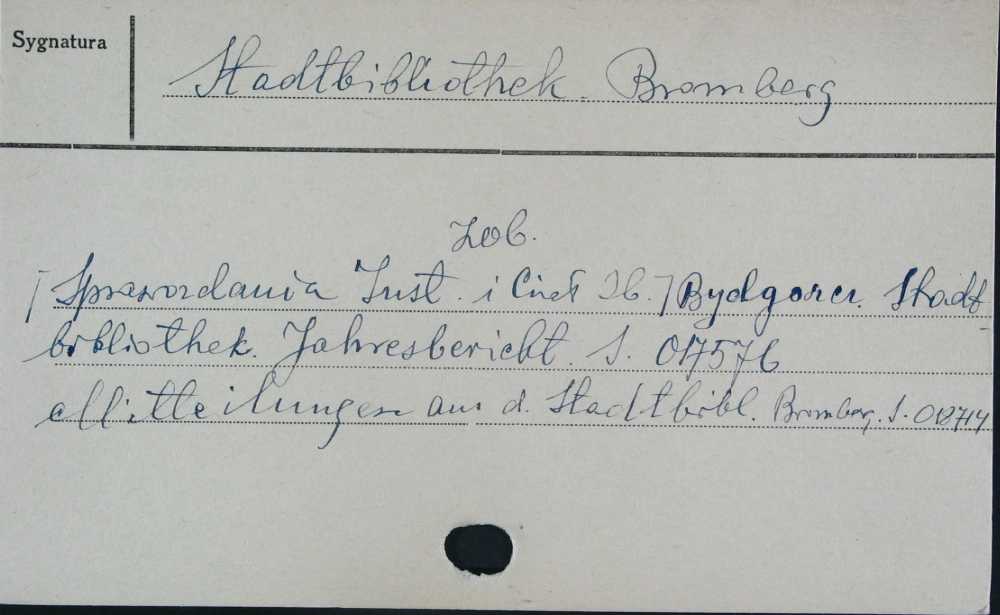 Sygnatura
Stadtbibliothek Bromberg
zob.
[Sprawozdania Inst. i Bydgoszcz. Stadt-
bibliothek. Jahresbericht. S. 017576
Mitteilungen aus d. Stadtbibl. Bromberg. S. 018714